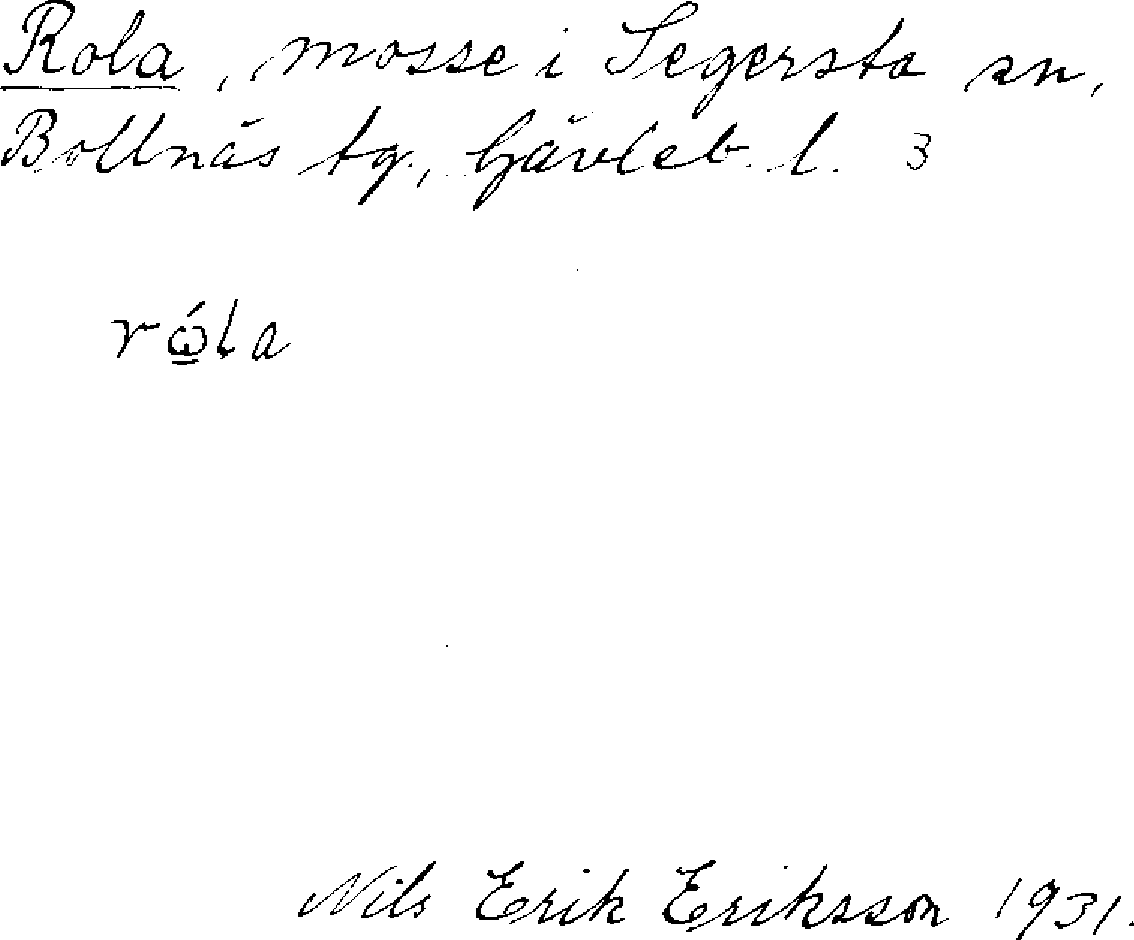 Rola, mosse i Segersta sn,
Bollnäs tg., Gävleb. l. 3
rώ̲la
Nils Erik Eriksson 1931.